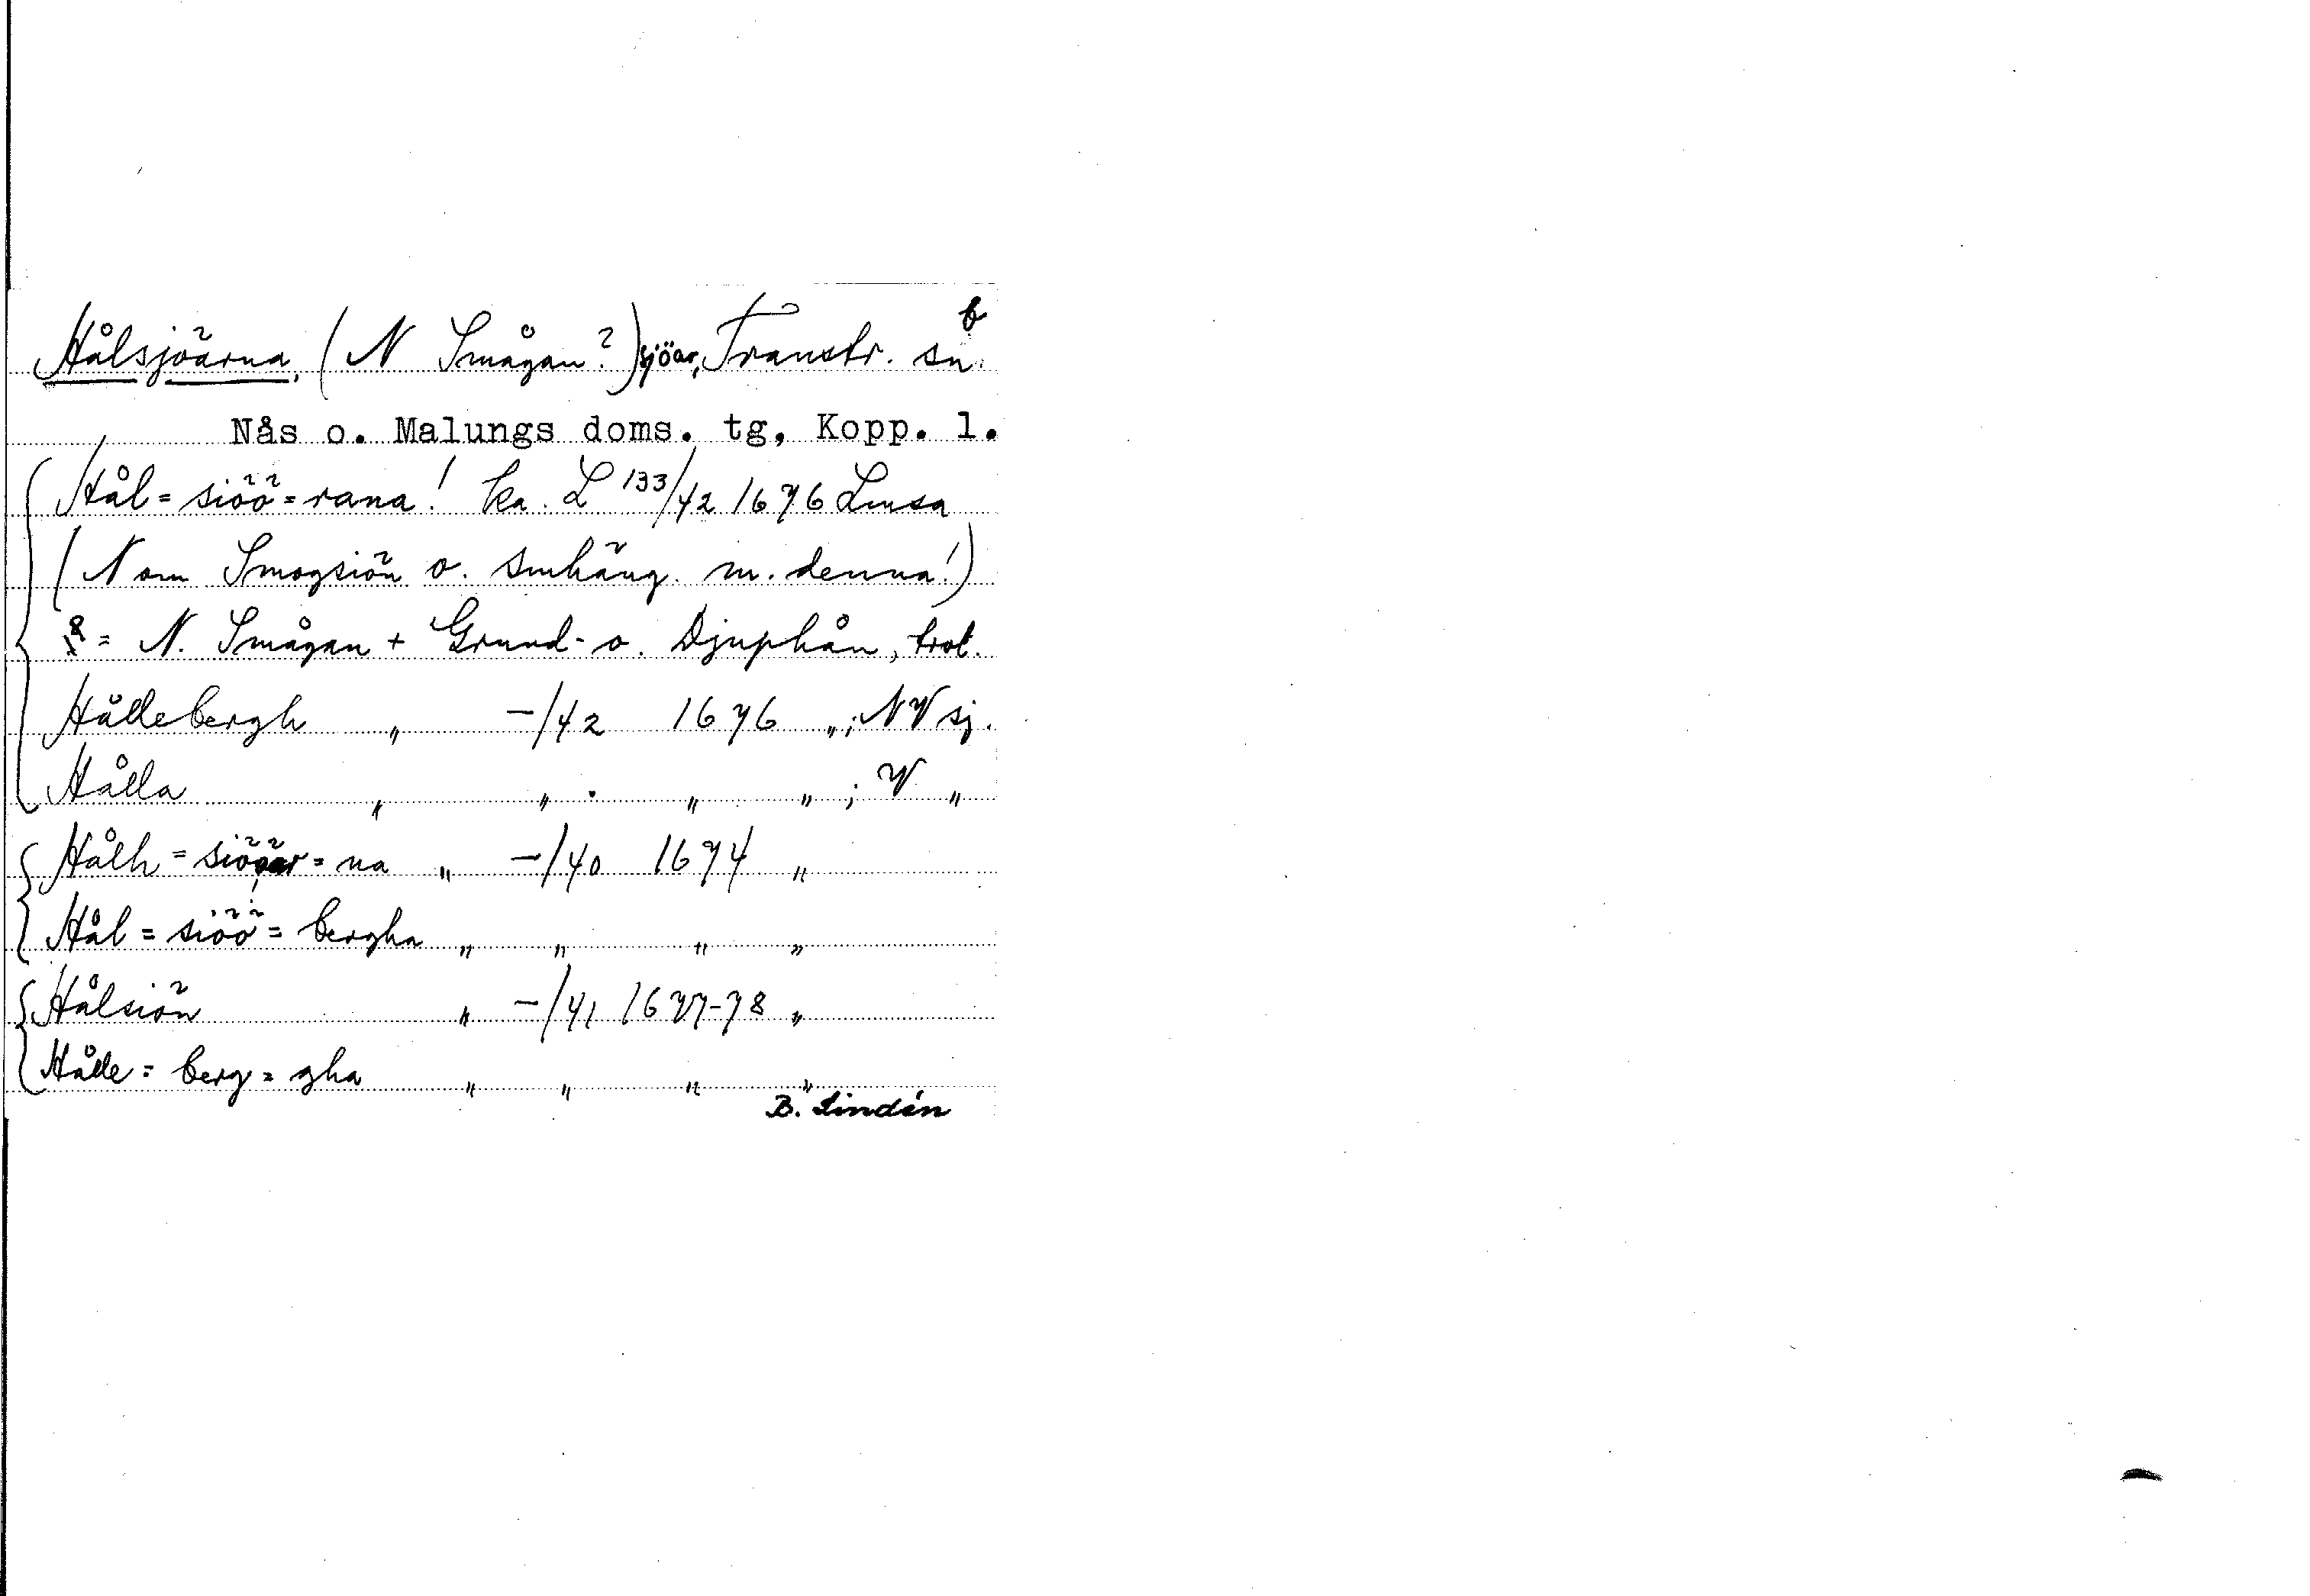 b
Hålsjöarna, (N Smågan?) sjöar, Transtr. sn.
Nås o. Malungs doms. tg, Kopp. l.
Hål=siöö=rana! ka. L 133/42 1676 Lmsa
(N om Smogsiön o. smhäng. m. denna!)
= N. Smågan + Grund- o. Djuphån, trol.
Hållebergh " -/42 1676 "; NV sj.
Hålla " " . " "; V "
Hålh=siöar=na " -/40 1674 "
Hål=siöö=bergha " " " "
Hålsiön " -/41 1677-78 "
Hålle=berg=gha " " " "
B. Lindén